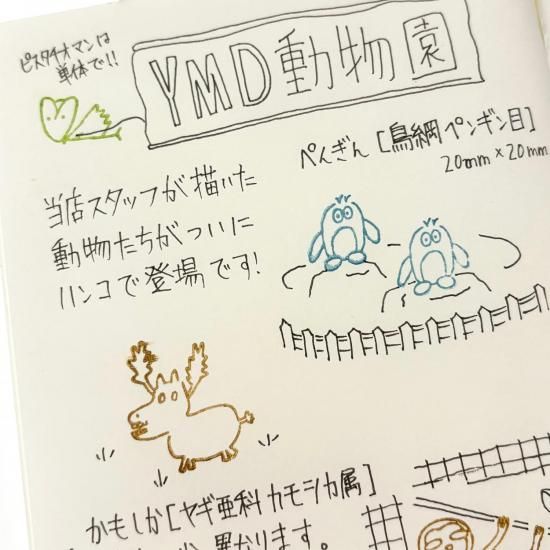 ピスタチオマンは
単体で!!
YMD動物園
ぺんぎん [鳥綱ペンギン目]
20mm×20mm
当店スタッフが描いた
動物たちがついに
ハンコで登場です!
かもしか[ヤギ亜科カモシカ属]
異なります。